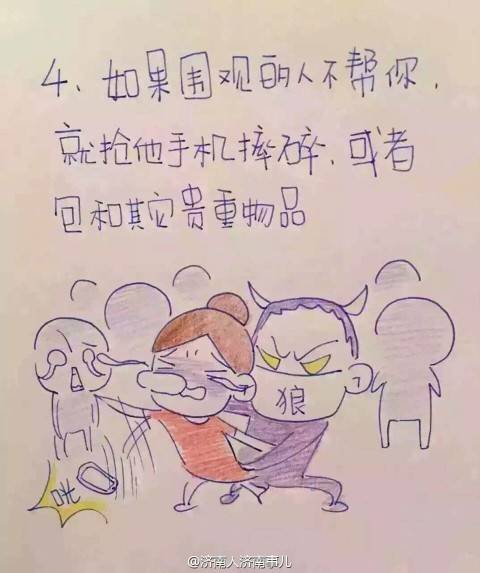 4、如果围观的人不帮你,
就抢他手机摔碎,或者
包和其它贵重物品
狼
咣
@济南人济南事儿